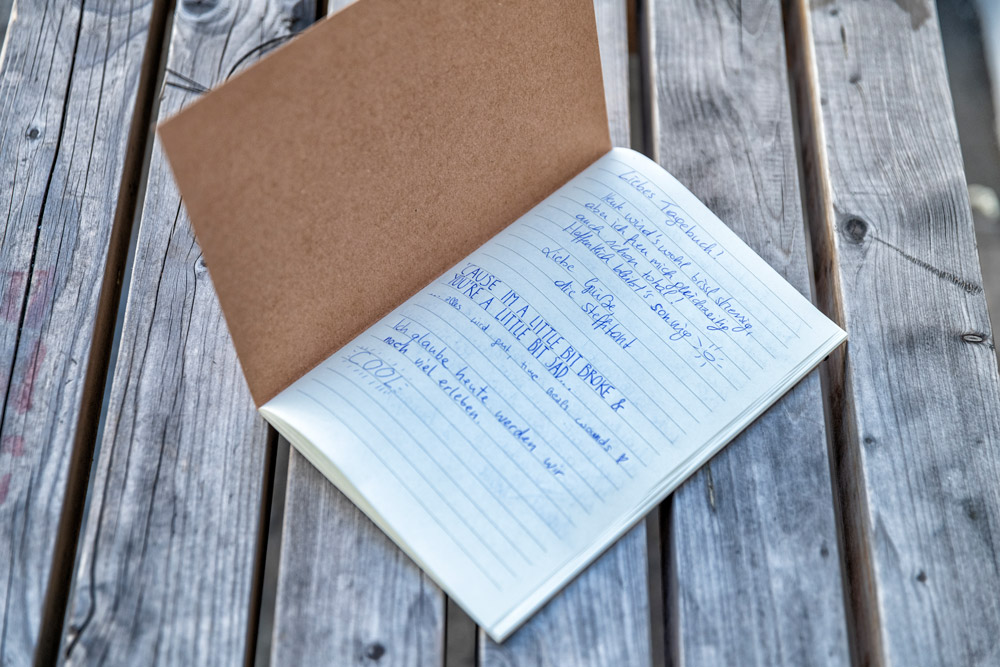 Liebes Tagebuch!
Heute wird's wohl bissl stressig,
aber ich freu mich gleichzeitig
auch schon total!
Hoffentlich bleibt's sonnig
Liebe Grüße
die steffitant
'CAUSE I'M A LITTLE BIT BROKE &
YOU'RE A LITTLE BIT SAD...
...alles wird gut,
Ich glaube heute werden wir
noch viel erleben.
COOL